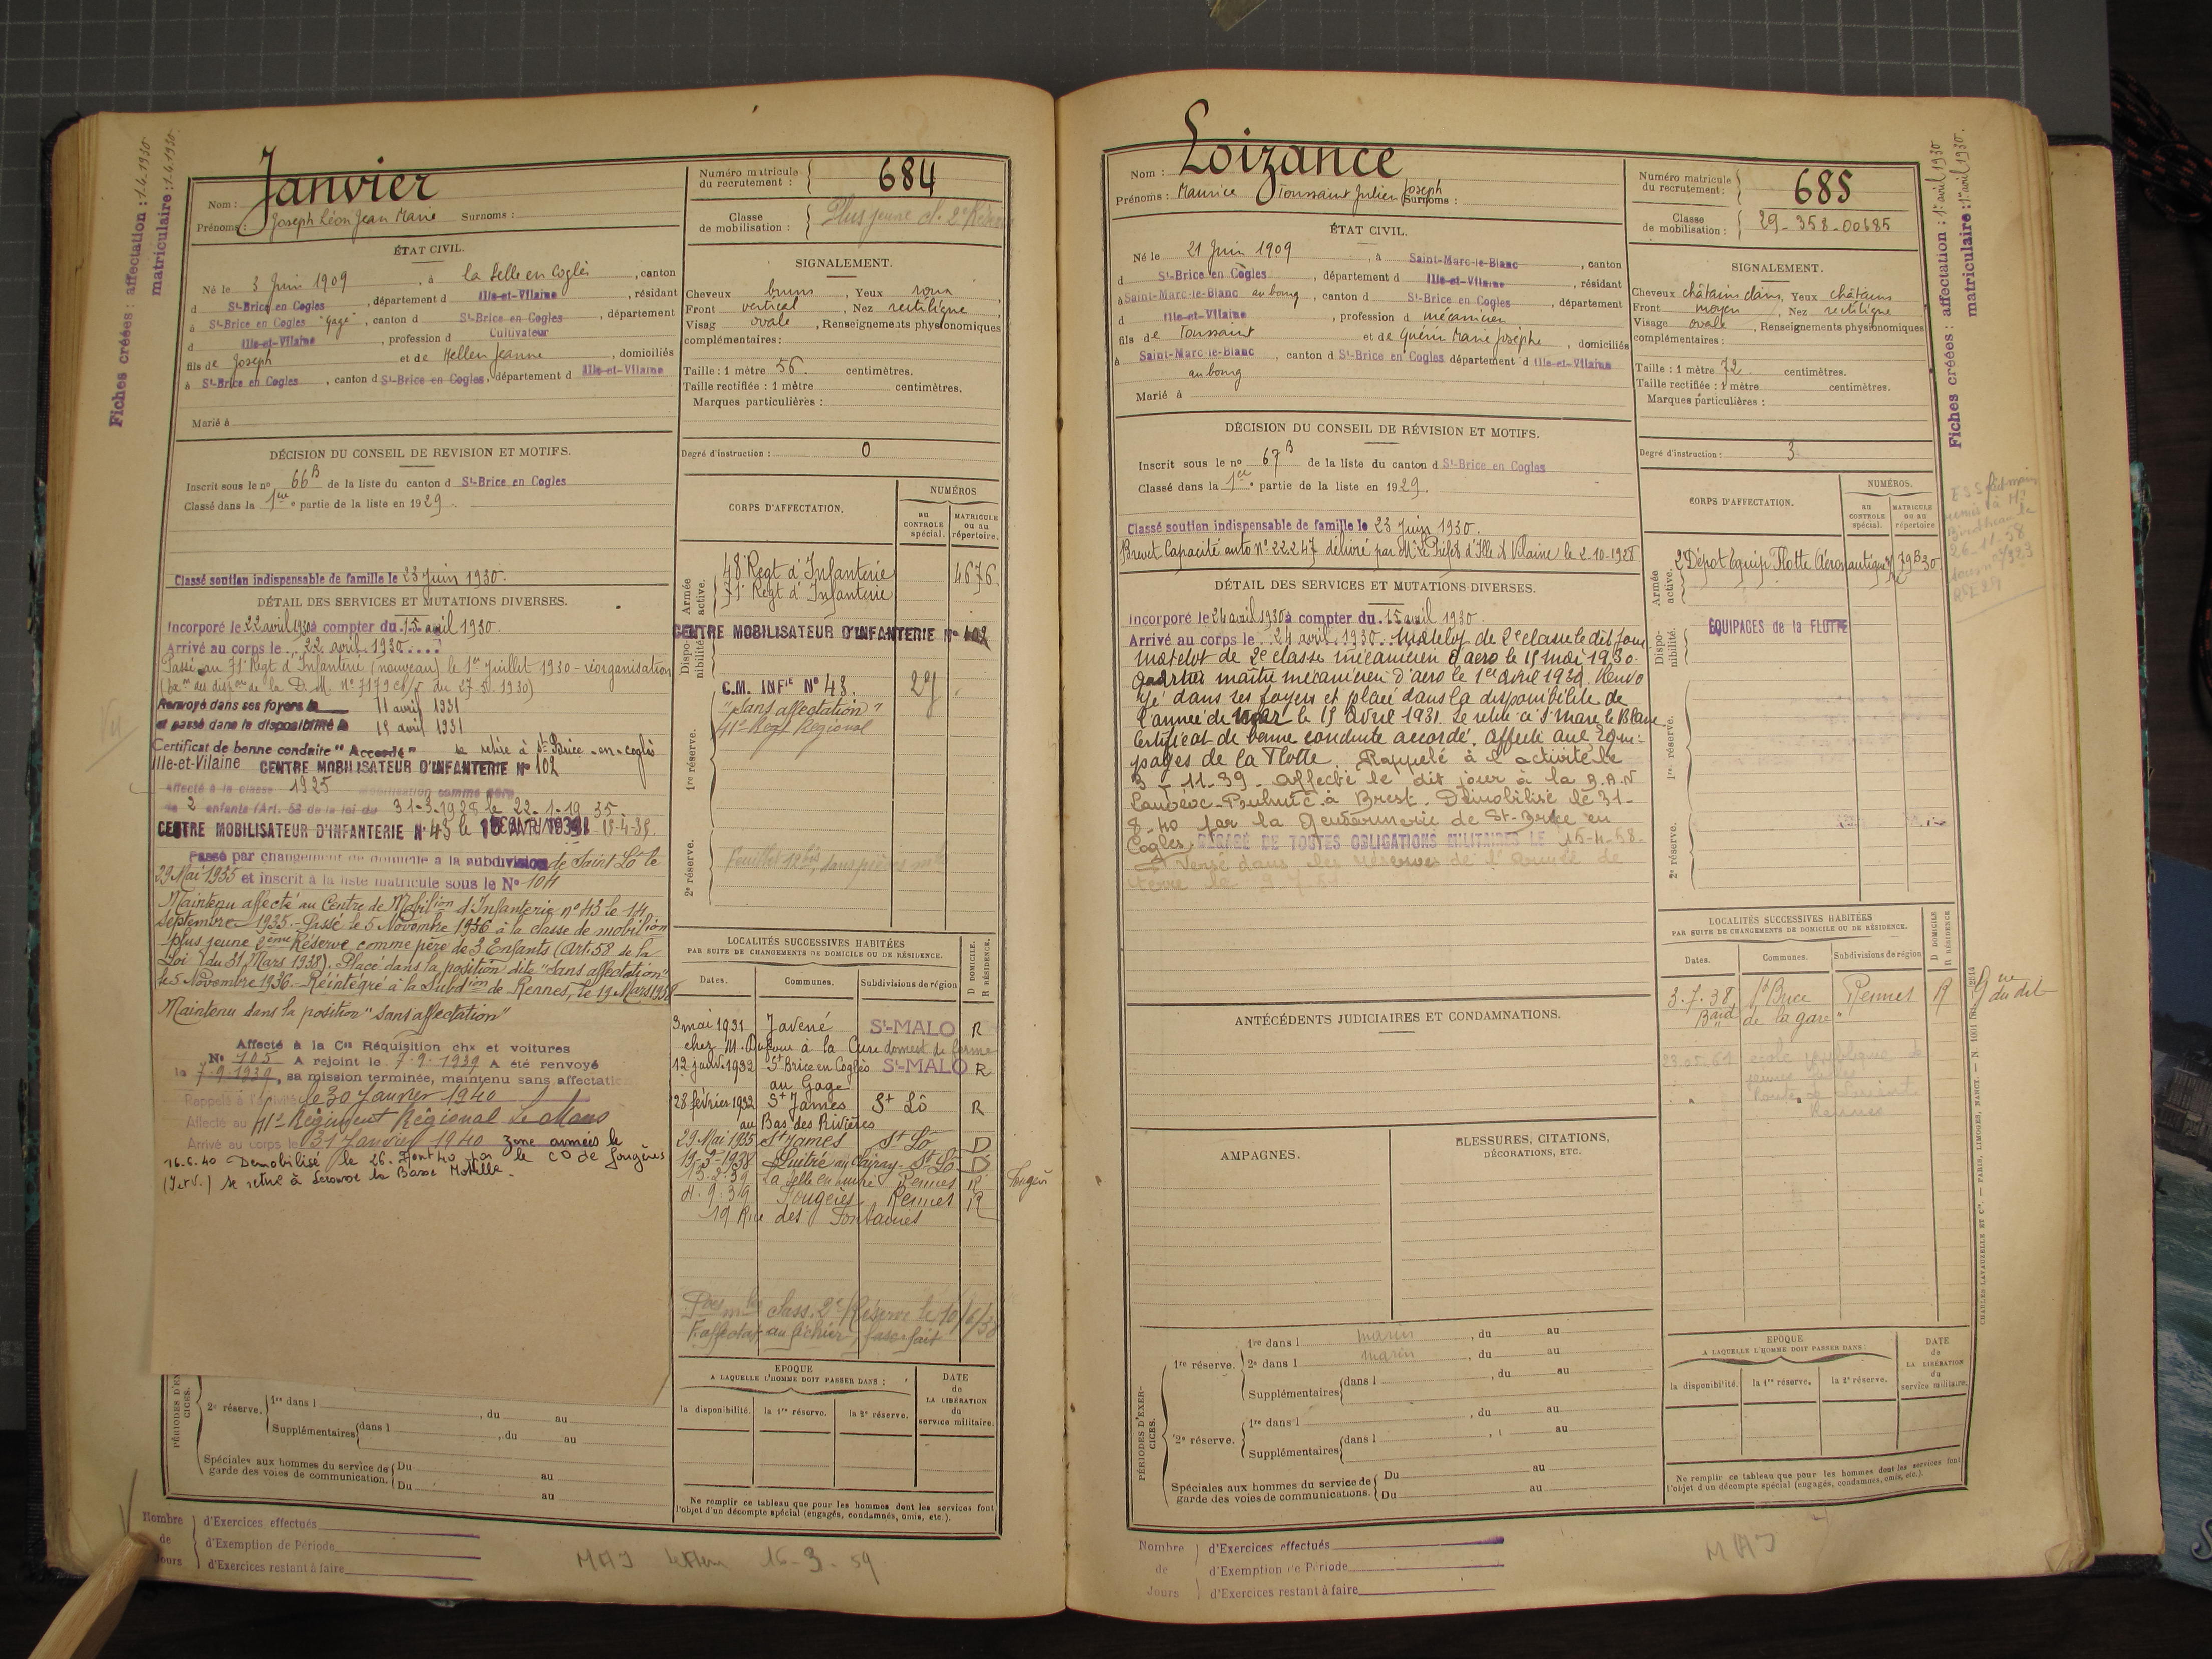 Fiches créées : affectation : 1.4.1930
matriculaire : 1.4.1930.
Nom : Janvier
Prénoms : Joseph Léon Jean Marie Surnoms :
Numéro matricule du recrutement : 684
Classe de mobilisation : Plus jeune cl. 2e Réserve
ÉTAT CIVIL.
Né le 3 Juin 1909, à la Selle en Coglès, canton
d St-Brice en Cogles, département d Ille-et-Vilaine, résidant
à St-Brice en Cogles "Gage", canton d St-Brice en Cogles, département
d Ille-et-Vilaine, profession d Cultivateur
fils de Joseph et de Hellen Jeanne, domiciliés
à St-Brice en Cogles, canton d St-Brice en Cogles, département d Ille-et-Vilaine
Marié à
SIGNALEMENT.
Cheveux bruns, Yeux roux
Front vertical, Nez rectiligne
Visage ovale, Renseignements physionomiques
complémentaires :
Taille : 1 mètre 56. centimètres.
Taille rectifiée : 1 mètre centimètres.
Marques particulières :
Degré d'instruction : 0
DÉCISION DU CONSEIL DE REVISION ET MOTIFS.
Inscrit sous le no 66B de la liste du canton d St-Brice en Cogles
Classé dans la 1ere partie de la liste en 1929.
Classé soutien indispensable de famille le 23 Juin 1930.
DÉTAIL DES SERVICES ET MUTATIONS DIVERSES.
Incorporé le 22 avril 1930 à compter du 15 avril 1930.
Arrivé au corps le 22 avril 1930
Passé au 71e Regt d'Infanterie (nouveau) le 1er Juillet 1930 - réorganisation
de la D.M. No 7179
Renvoyé dans ses foyers le 11 avril 1931
et passé dans la disponibilité le 15 avril 1931
Certificat de bonne conduite "Accordé" se retire à St-Brice-en-Coglès
Ille-et-Vilaine CENTRE MOBILISATEUR D'INFANTERIE No 102
Affecté à la classe 1925 mobilisation comme père
de 2 enfants (Art. 58 de la loi du 31-3-1928 le 22-1-1935
CENTRE MOBILISATEUR D'INFANTERIE No 43 le 15-4-35
Passé par changement de domicile à la subdivision de Saint Lô le
29 Mai 1935 et inscrit à la liste matricule sous le No 104
Maintenu affecté au Centre de Mobilion d'Infanterie no 43 le 14
Septembre 1935.- Passé le 5 Novembre 1936 à la classe de mobilion
plus jeune 2ème Réserve comme père de 3 Enfants (Art. 58 de la
Loi du 31 Mars 1928). Placé dans la position dite "Sans affectation"
le 5 Novembre 1936.- Réintégré à la Subdion de Rennes, le 19 Mars 1938
Maintenu dans la position "Sans affectation"
Affecté à la Cie Réquisition chx et voitures
No 105 A rejoint le 7.9.1939 A été renvoyé
le 7.9.1939, sa mission terminée, maintenu sans affectation
Rappelé à l'activité le 30 Janvier 1940
Affecté au 41e Régiment Régional Le Mans
Arrivé au corps le 31 Janvier 1940 Zone armées le
16.6.40 Démobilisé le 26. Aout 40 par le CD de Fougères
(I et V.) se retire à la Basse Motille.
CORPS D'AFFECTATION.
NUMÉROS
au CONTROLE spécial.
MATRICULE ou au répertoire.
Armée active.
48e Regt d'Infanterie 4676
71e Regt d'Infanterie
Disponibilité.
CENTRE MOBILISATEUR D'INFANTERIE No 102
1re réserve.
C.M. INFie No 43.
"Sans affectation"
41e Regt Régional
2e réserve.
LOCALITÉS SUCCESSIVES HABITÉES
PAR SUITE DE CHANGEMENTS DE DOMICILE OU DE RÉSIDENCE.
D DOMICILE. R RÉSIDENCE.
Dates. Communes. Subdivisions de région
3 mai 1931 Javené St-MALO R
chez M. Dufour à la Cure domest de ferme
12 janv. 1932 St Brice en Coglès St-MALO R
au Gage
28 février 1932 St James St Lô R
au Bas des Rivières
29 Mai 1935 St James St Lô D
19-3-1938 Luitré St Lô D
15.2.39 La Selle en Luitré Rennes R
4.9.39 Fougères Rennes R
19 Rue des Fontaines
Fougères
class. 2e Réserve le 10/6/38
au fichier
PÉRIODES D'EXERCICES.
2e réserve. 1re dans l , du au
Supplémentaires dans l , du au
Spéciales aux hommes du service de garde des voies de communication. Du au
Du au
EPOQUE
A LAQUELLE L'HOMME DOIT PASSER DANS :
la disponibilité. la 1re réserve. la 2e réserve.
DATE de LA LIBÉRATION du service militaire.
Ne remplir ce tableau que pour les hommes dont les services font
l'objet d'un décompte spécial (engagés, condamnés, omis, etc.).
Nombre de Jours
d'Exercices effectués
d'Exemption de Période
d'Exercices restant à faire
MAJ 16-3-59
Nom : Loizance
Prénoms : Maurice Toussaint Julien Joseph Surnoms :
Numéro matricule du recrutement : 685
Classe de mobilisation : 29-358-00685
Fiches créées : affectation : 1er avril 1930
matriculaire : 1er avril 1930.
ÉTAT CIVIL.
Né le 21 Juin 1909, à Saint-Marc-le-Blanc, canton
d St-Brice en Cogles, département d Ille-et-Vilaine, résidant
à Saint-Marc-le-Blanc au bourg, canton d St-Brice en Cogles, département
d Ille-et-Vilaine, profession d mécanicien
fils de Toussaint et de Guérin Marie Josèphe, domiciliés
à Saint-Marc-le-Blanc, canton d St-Brice en Cogles département d Ille-et-Vilaine
au bourg
Marié à
SIGNALEMENT.
Cheveux châtains clairs, Yeux châtains
Front moyen, Nez rectiligne
Visage ovale, Renseignements physionomiques
complémentaires :
Taille : 1 mètre 72. centimètres.
Taille rectifiée : 1 mètre centimètres.
Marques particulières :
Degré d'instruction : 3
DÉCISION DU CONSEIL DE RÉVISION ET MOTIFS.
Inscrit sous le no 67B de la liste du canton d St-Brice en Cogles
Classé dans la 1ere partie de la liste en 1929.
Classé soutien indispensable de famille le 23 Juin 1930.
Brevet Capacité auto No 22247 délivré par Mr le Préfet d'Ille & Vilaine le 2-10-1928
DÉTAIL DES SERVICES ET MUTATIONS DIVERSES.
Incorporé le 24 avril 1930 à compter du 15 avril 1930.
Arrivé au corps le 24 avril 1930. Matelot de 2e classe le dit jour
matelot de 2e classe mécanicien d'aero le 15 mai 1930.
Quartier maître mécanicien d'aero le 1er avril 1931. Renvo
yé dans ses foyers et placé dans la disponibilité de
l'armée de mer le 15 Avril 1931. Se retire à St Marc le Blanc
Certificat de bonne conduite accordé. Affecté aux Equi-
pages de la Flotte. Rappelé à l'activité le
3-11-39 - affecté le dit jour à la B.A.N
Lanvéoc-Poulmic à Brest. Démobilisé le 31-
8-40 par la Gendarmerie de St-Brice en
Cogles. DÉGAGÉ DE TOUTES OBLIGATIONS MILITAIRES LE 15-4-58.
Versé dans les réserves de l'armée de
terre le
CORPS D'AFFECTATION.
NUMÉROS.
au CONTROLE spécial.
MATRICULE ou au répertoire.
Armée active.
2 Dépot Equip Flotte Aéronautique 79B30
Disponibilité.
ÉQUIPAGES de la FLOTTE
1re réserve.
2e réserve.
ANTÉCÉDENTS JUDICIAIRES ET CONDAMNATIONS.
LOCALITÉS SUCCESSIVES HABITÉES
PAR SUITE DE CHANGEMENTS DE DOMICILE OU DE RÉSIDENCE.
D DOMICILE R RÉSIDENCE
Dates. Communes. Subdivisions de région
3.7.38 St Brice Rennes R
Bard de la gare
23.05.61 école publique de
jeunes filles
Route de Lorient
Rennes
AMPAGNES.
BLESSURES, CITATIONS,
DÉCORATIONS, ETC.
PÉRIODES D'EXERCICES.
1re réserve. 1re dans l marin, du au
2e dans l marin, du au
Supplémentaires dans l , du au
2e réserve. 1re dans l , du au
Supplémentaires dans l , au
Spéciales aux hommes du service de garde des voies de communications. Du au
Du au
EPOQUE
A LAQUELLE L'HOMME DOIT PASSER DANS :
la disponibilité. la 1re réserve. la 2e réserve.
DATE de LA LIBÉRATION du service militaire.
Ne remplir ce tableau que pour les hommes dont les services font
l'objet d'un décompte spécial (engagés, condamnés, omis, etc.).
CHARLES-LAVAUZELLE ET Cie. — PARIS, LIMOGES, NANCY.
Nombre de Jours
d'Exercices effectués
d'Exemption de Période
d'Exercices restant à faire
MAJ